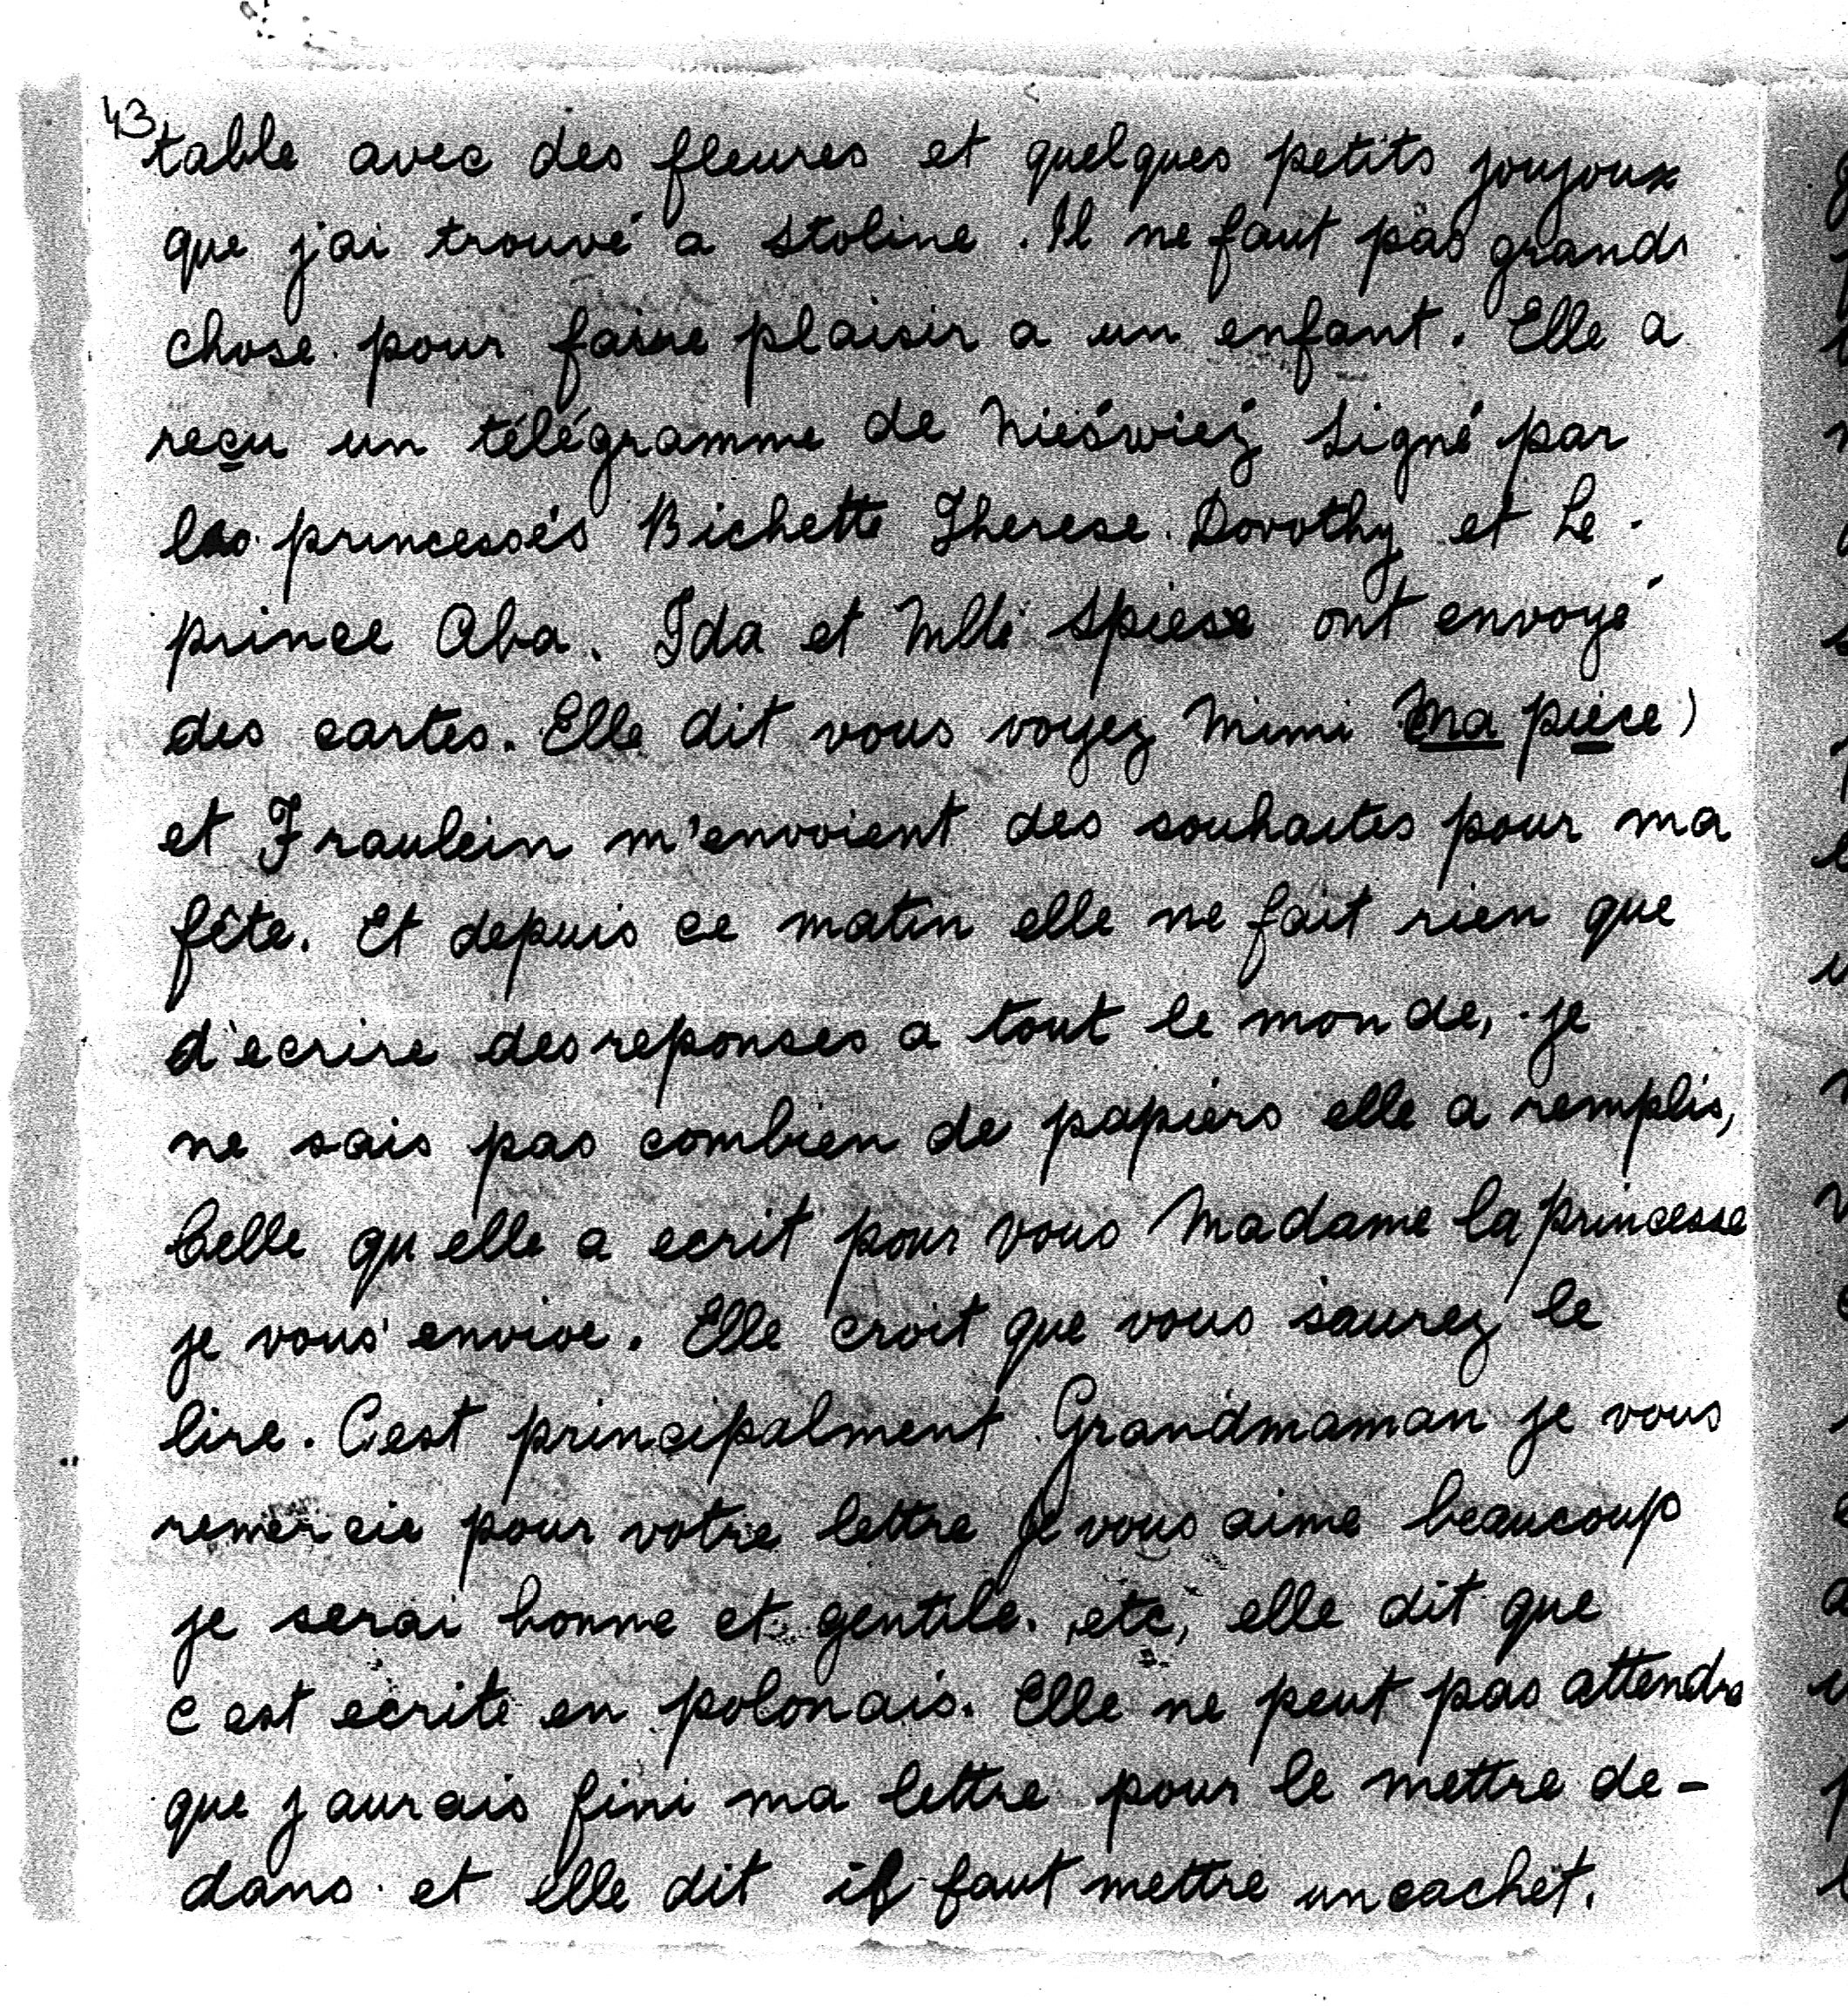 43
table avec des fleures et quelques petits joujoux
que j'ai trouvé a Stoline. Il ne faut pas grand
chose pour faire plaisir a un enfant. Elle a
reçu un télégramme de Nieświeź signé par
les princessés Bichette Therese. Dorothy et Le
prince Aba. Ida et Mlle Spiess ont envoyé
des cartes. Elle dit vous voyez Mimi (ma pièce)
et Fraulein m'envoient des souhaites pour ma
fête. Et depuis ce matin elle ne fait rien que
d'ecrire des reponses a tout le monde, je
ne sais pas combien de papiers elle a remplis,
Celle qu elle a ecrit pour vous Madame la princesse
je vous envioe. Elle croit que vous saurez le
lire. C'est principalment Grandmaman je vous
remercie pour votre lettre je vous aime beaucoup
je serai bonne et gentile. etc, elle dit que
c est ecrite en polonais. Elle ne peut pas attendre
que j aurais fini ma lettre pour le mettre de-
dans et elle dit il faut mettre un cachet.